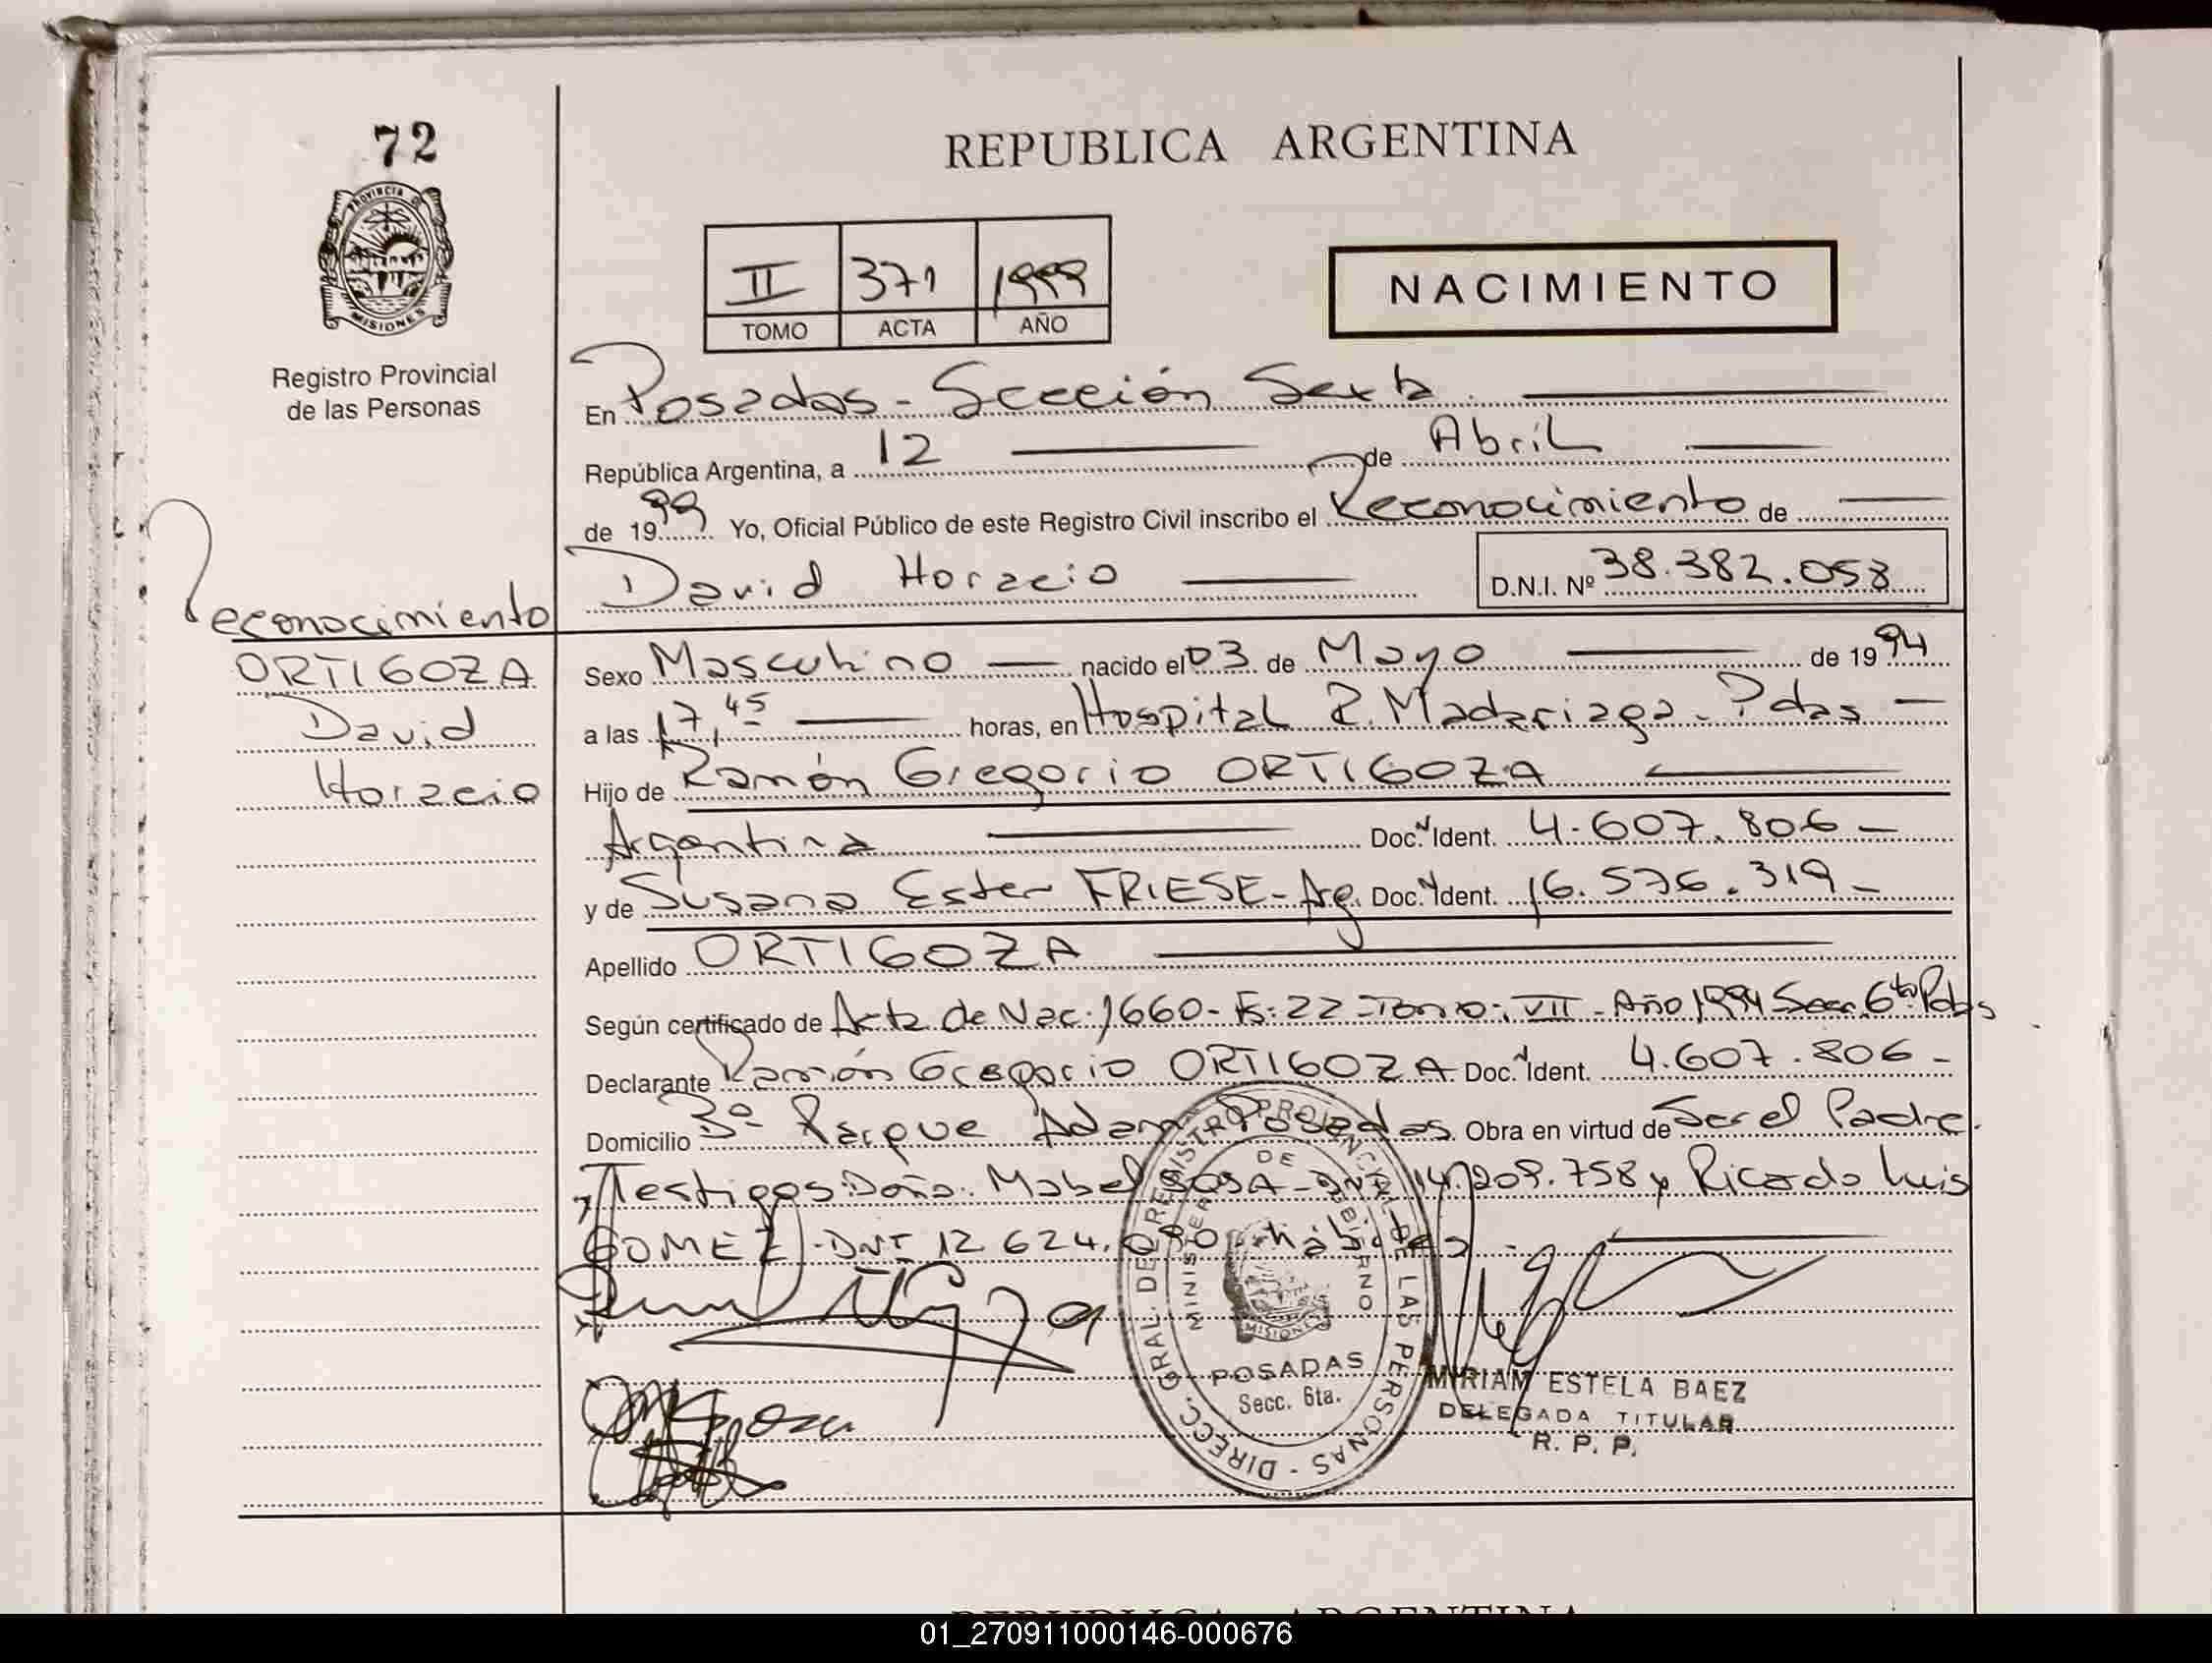 72
PROVINCIA D
MISIONES
Registro Provincial
de las Personas
Reconocimiento
ORTIGOZA
David
Horacio
REPUBLICA ARGENTINA
II 371 1999
TOMO ACTA AÑO
NACIMIENTO
En Posadas - Sección Sexta.
República Argentina, a 12 de Abril
de 1999 Yo, Oficial Público de este Registro Civil inscribo el Reconocimiento de
David Horacio D.N.I. Nº 38.382.058
Sexo Masculino nacido el 03 de Mayo de 1994
a las 17,45 horas, en Hospital R. Madariaga - Pdas -
Hijo de Ramón Gregorio ORTIGOZA
Argentina Doc. Ident. 4.607.806 -
y de Susana Ester FRIESE - Arg. Doc. Ident. 16.576.319 -
Apellido ORTIGOZA
Según certificado de Acta de Nac: 1660 - Fº: 22 - Tomo: VII - Año 1994 Secc. 6ta Pdas
Declarante Ramón Gregorio ORTIGOZA Doc. Ident. 4.607.806 -
Domicilio Bº Parque Adam Posadas. Obra en virtud de Ser el Padre.
Testigos: Doña: Mabel SOSA - DNI 14.209.758 y Ricardo Luis
GOMEZ - DNI 12.624.090 - hábiles -
DIRECC. GRAL. DE REGISTRO PROVINCIAL DE LAS PERSONAS
MINISTERIO DE GOBIERNO
MISIONES
POSADAS
Secc. 6ta.
MIRIAM ESTELA BAEZ
DELEGADA TITULAR
R. P. P.
REPUBLICA ARGENTINA
01_270911000146-000676